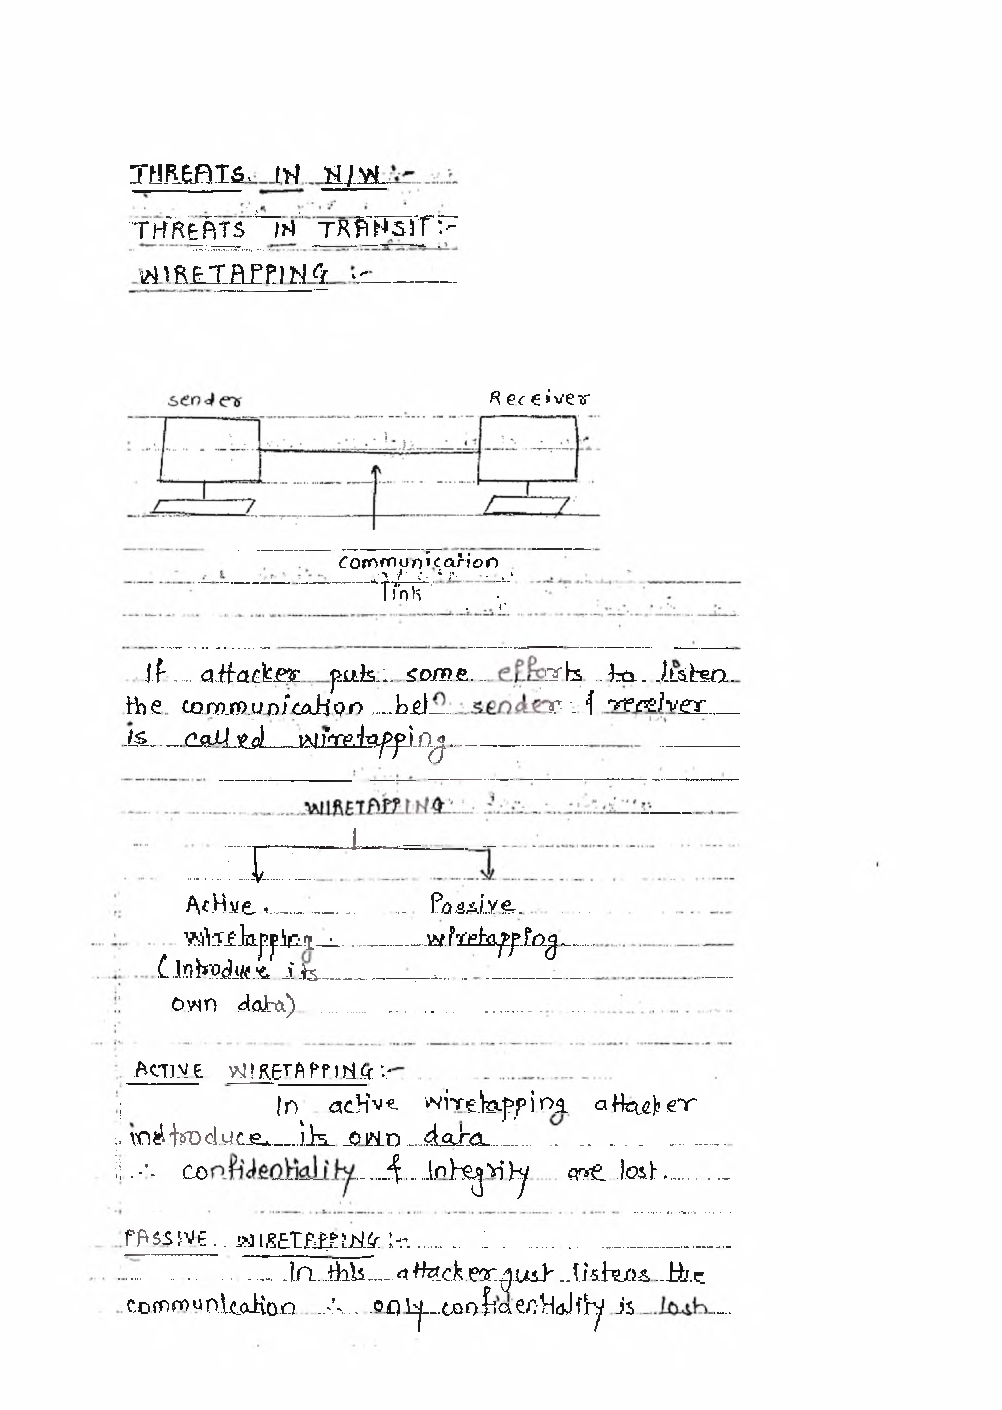 THREATS IN N/W :-
THREATS IN TRANSIT:-
WIRETAPPING :-
sender Receiver
communication
link
If attacker puts some efforts to listen
the communication betn sender & receiver
is called wiretapping
WIRETAPPING
Active Passive
wiretapping wiretapping
(Introduce its
own data)
ACTIVE WIRETAPPING:-
In active wiretapping attacker
introduce its own data
∴ confidentiality & Integrity are lost.
PASSIVE WIRETAPPING:-
In this attacker just listens the
communication ∴ only confidentiality is lost